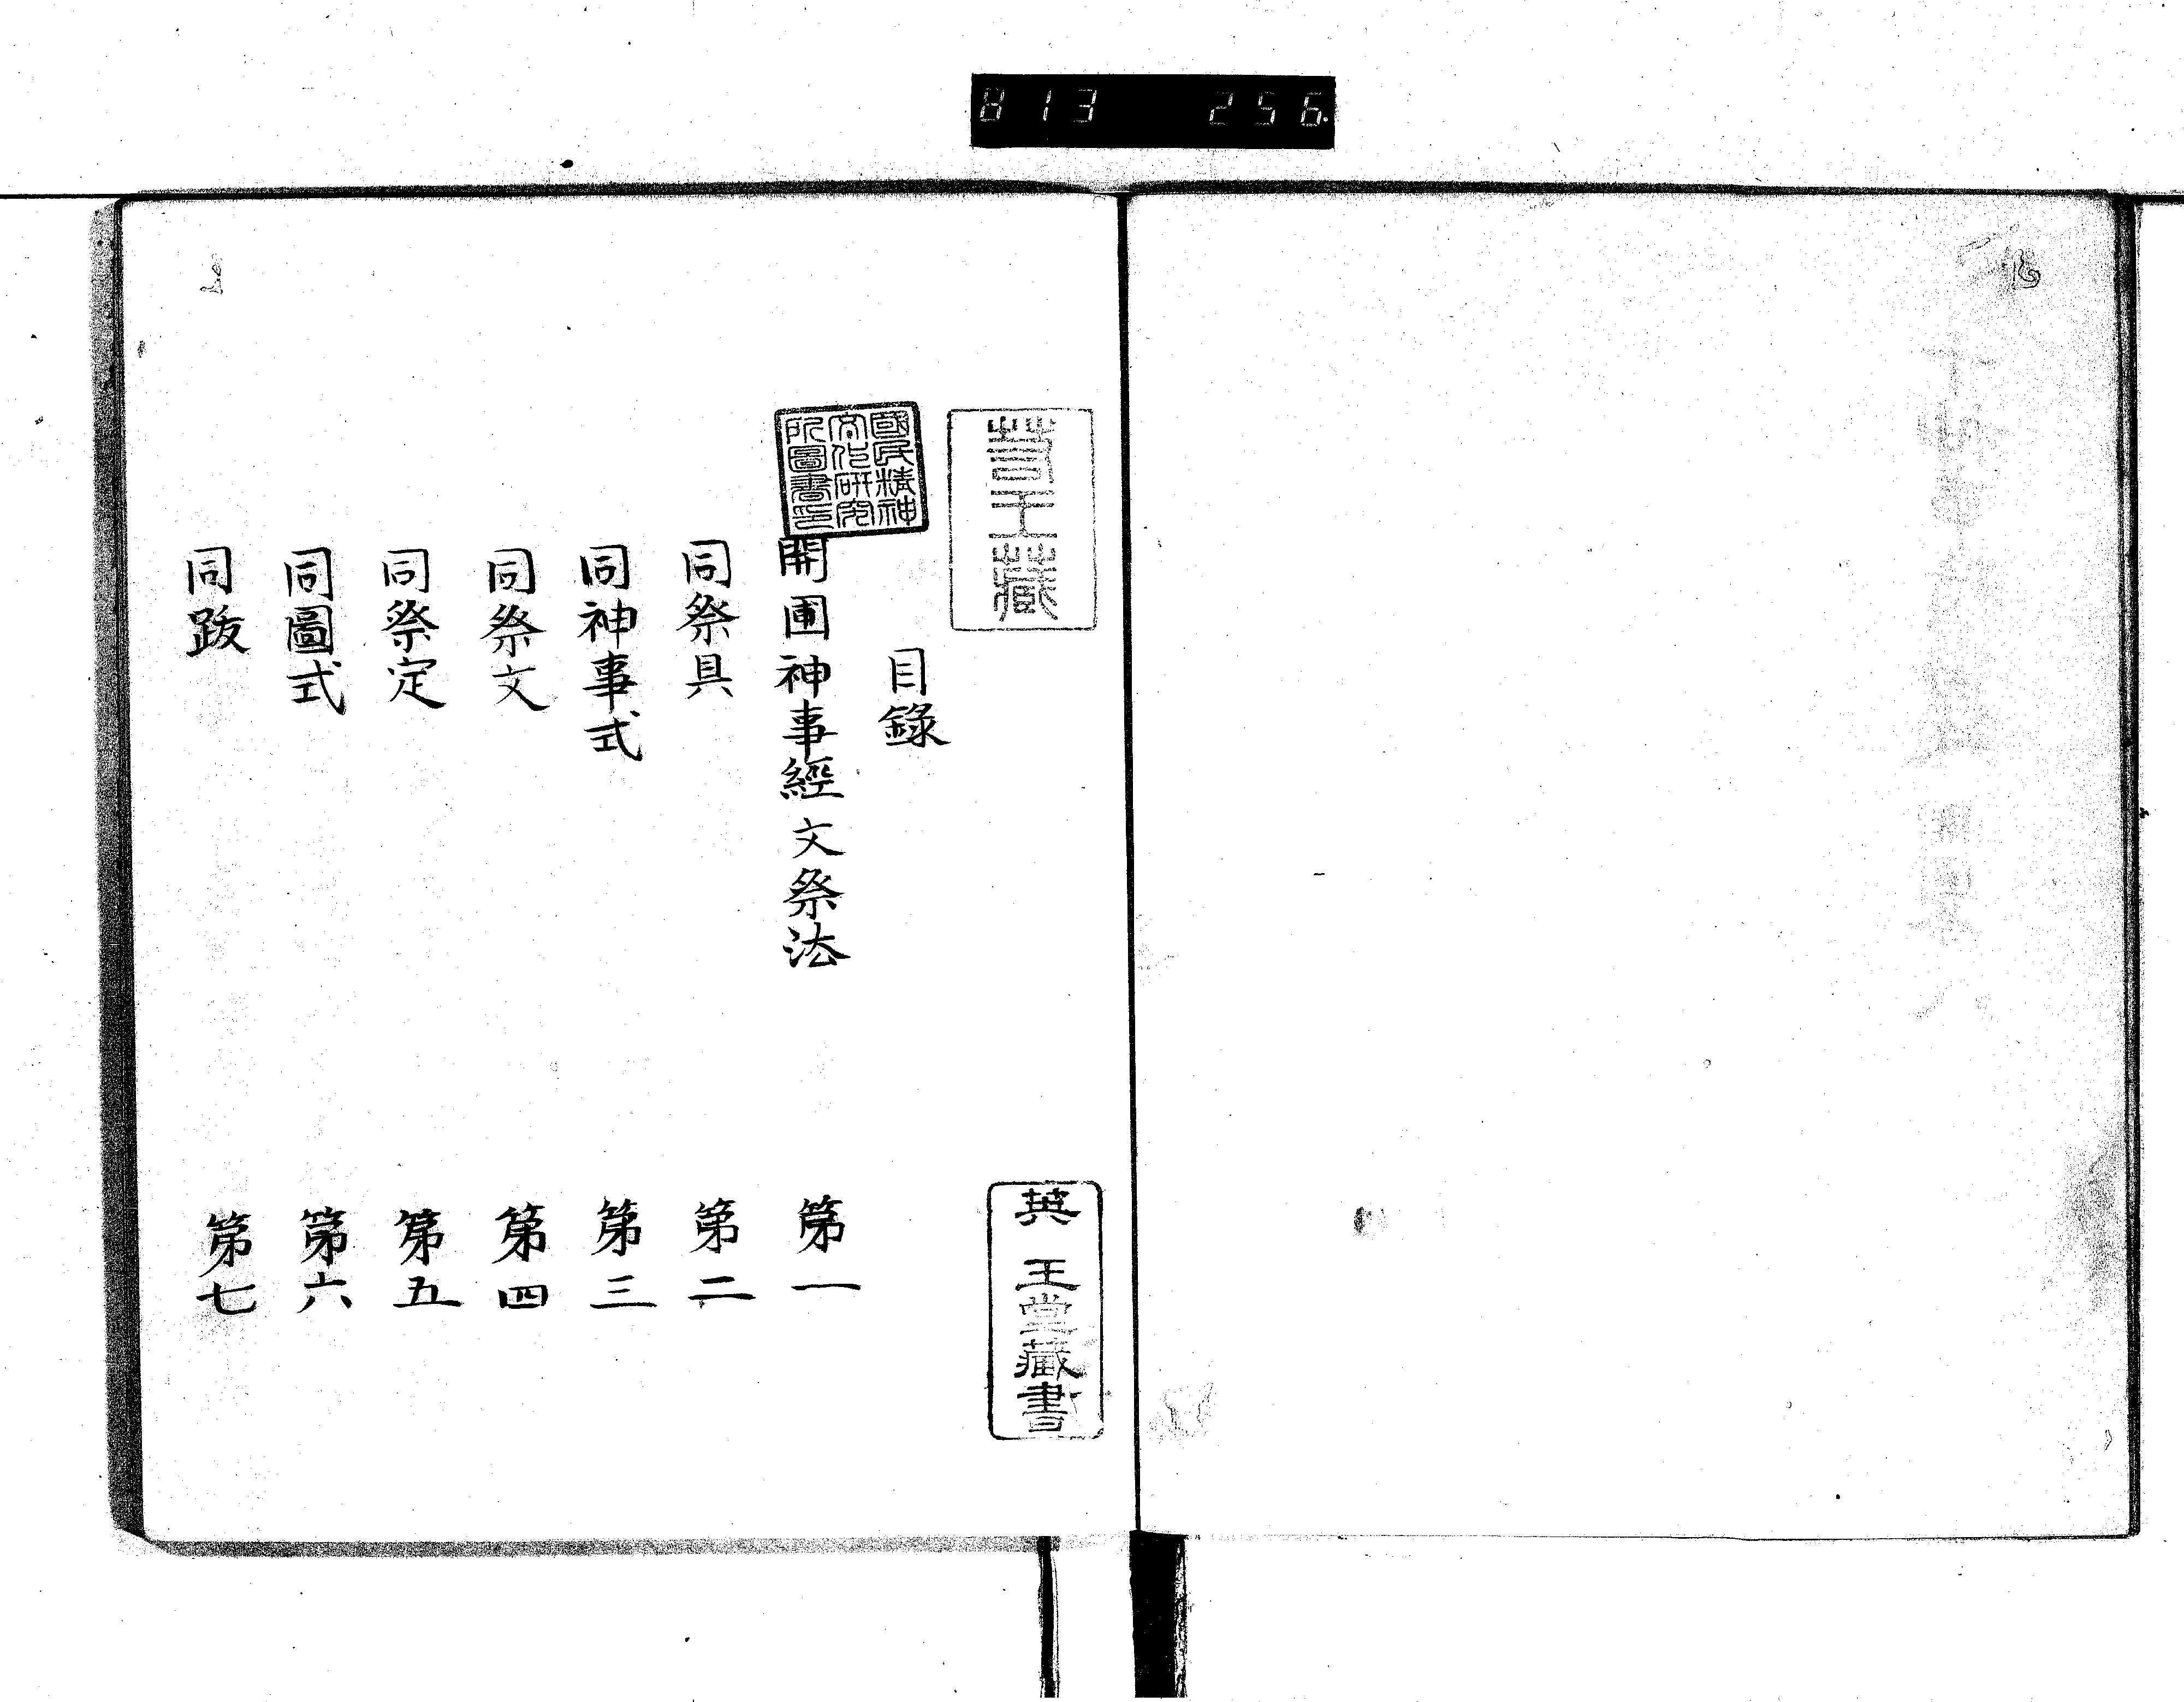 813 256
英王堂藏書
國民精神
文化研究
所圖書印
目錄
開圃神事經文祭法 第一
同祭具 第二
同神事式 第三
同祭文 第四
同祭定 第五
同圖式 第六
同跋 第七